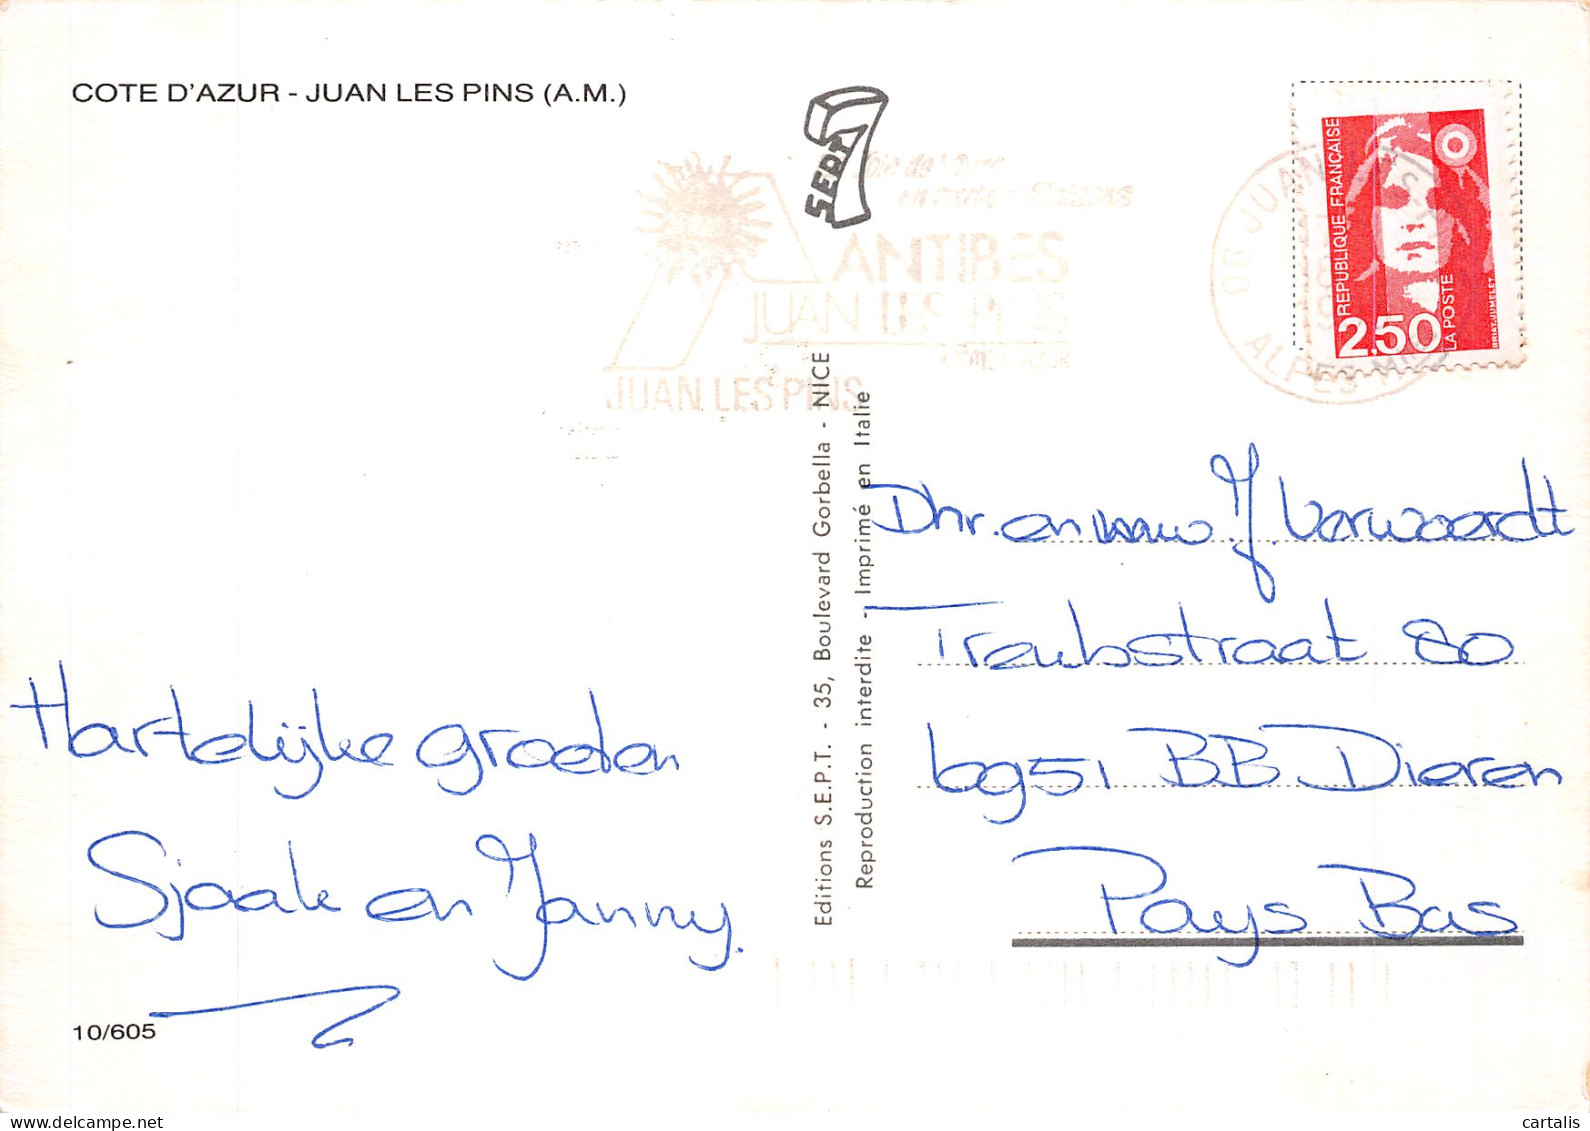 COTE D'AZUR - JUAN LES PINS (A.M.)
SEPT
7
Joie de Vivre
en toutes Saisons
ANTIBES
JUAN LES PINS
JUAN LES PINS
06 JUAN
ALPES M
REPUBLIQUE FRANÇAISE
2,50
LA POSTE
BRIAT-JUMELET
Editions S.E.P.T. - 35, Boulevard Gorbella - NICE
Reproduction interdite - Imprimé en Italie
Dhr. en mw. J. Verwaerdt
Treubstraat 80
6951 BB Dieren
Pays Bas
Hartelijke groeten
Sjaak en Janny.
10/605
cartalis.com